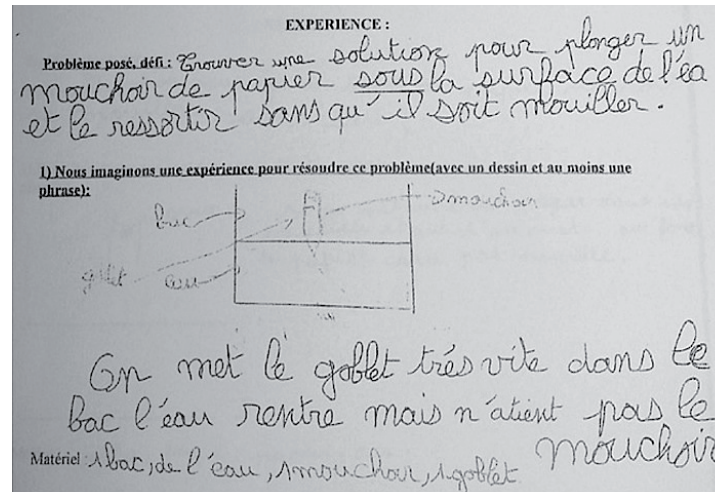 EXPERIENCE :
Problème posé, défi : Trouver une solution pour plonger un
mouchoir de papier sous la surface de l'éa
et le ressortir sans qu'il soit mouiller.
1) Nous imaginons une expérience pour résoudre ce problème(avec un dessin et au moins une
phrase):
bac mouchoir
goblet eau
On met le goblet trés vite dans le
bac l'éau rentre mais n'atient pas le
mouchoir
Matériel : 1 bac, de l'éau, 1 mouchoir, 1 goblet